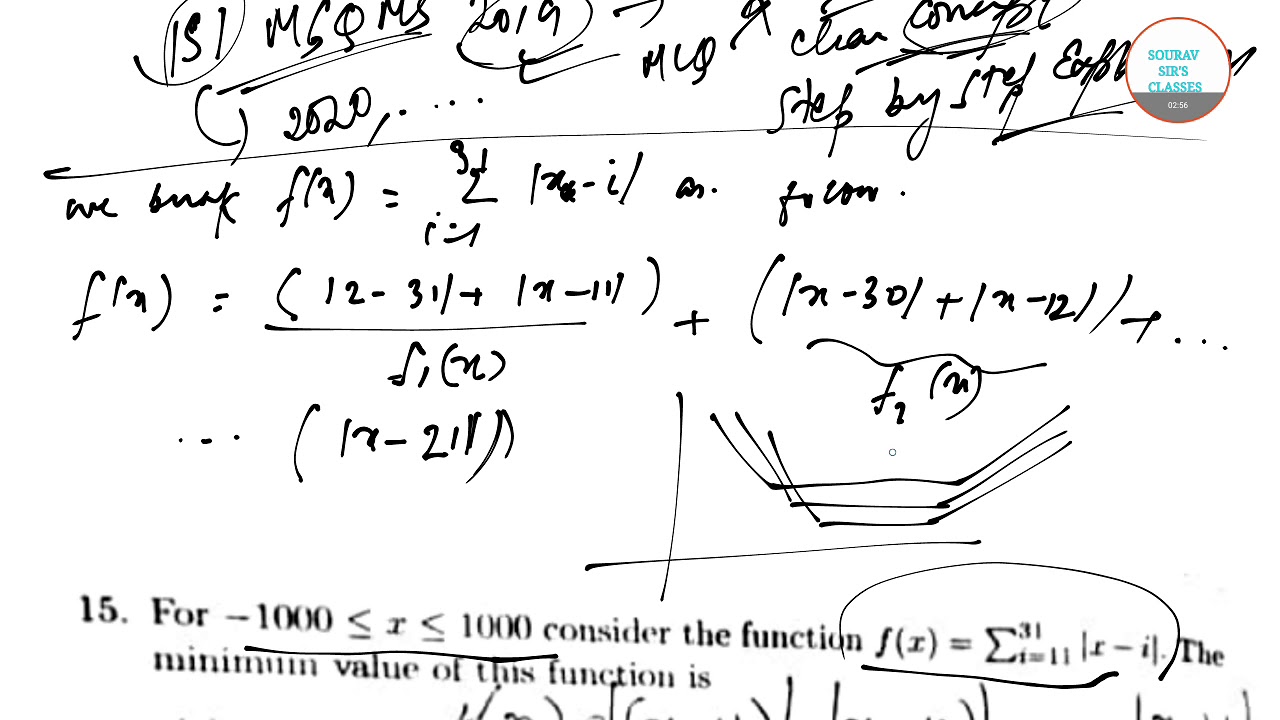 ISI MSQMS 2019 → MCQ
2020, ...
clear concept
step by step
SOURAV
SIR'S
CLASSES
02:56
we break f(x) = Σ |x - i| as follow.
i=1
f(x) = (|2-31| + |x-11|) + (|x-30| + |x-12|) + ...
f₁(x)
f₂(x)
... (|x-21|)
15. For −1000 ≤ x ≤ 1000 consider the function f(x) = ∑³¹ᵢ₌₁₁ |x − i|. The
minimum value of this function is